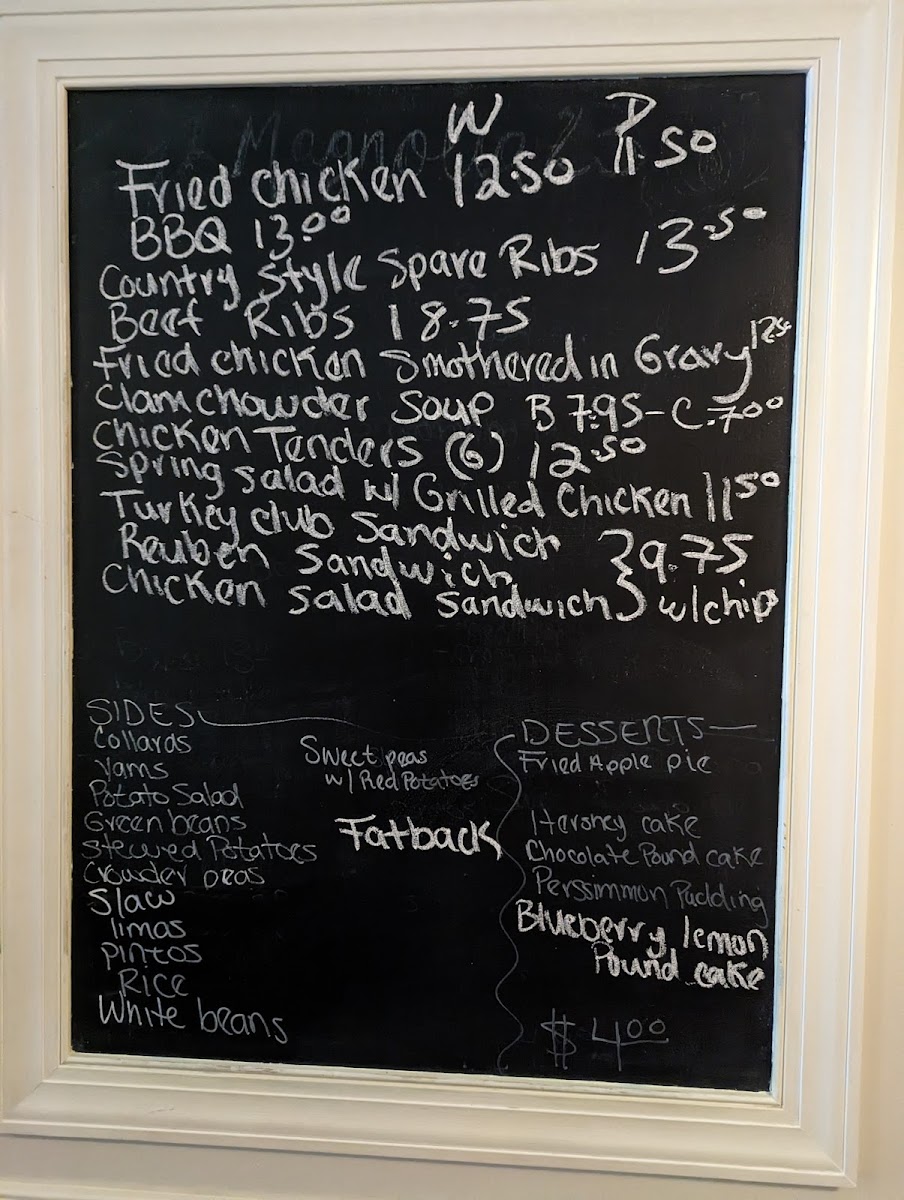 W D
Fried chicken 12.50 11.50
BBQ 13.00
Country Style Spare Ribs 13.50
Beef Ribs 18.75
Fried chicken Smothered in Gravy 1250
Clam chowder Soup B 7.95 - C. 7.00
Chicken Tenders (6) 12.50
Spring salad w/ Grilled Chicken 11 50
Turkey club Sandwich
Reuben Sandwich } 9.75
Chicken salad sandwich w/chip
SIDES
Collards
Yams
Potato Salad
Green beans
Stewed Potatoes
Crowder peas
Slaw
limas
pintos
Rice
White beans
Sweet peas
w/ Red Potatoes
Fatback
DESSERTS
Fried Apple pie
Hershey cake
Chocolate Pound cake
Perssimmon Pudding
Blueberry lemon
Pound cake
$ 4.00